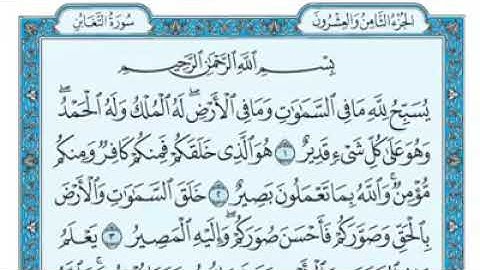 الجزء الثامن والعشرون
سورة التغابن
بِسْمِ ٱللَّهِ ٱلرَّحْمَٰنِ ٱلرَّحِيمِ
يُسَبِّحُ لِلَّهِ مَا فِي ٱلسَّمَٰوَٰتِ وَمَا فِي ٱلْأَرْضِۖ لَهُ ٱلْمُلْكُ وَلَهُ ٱلْحَمْدُۖ
وَهُوَ عَلَىٰ كُلِّ شَيْءٍ قَدِيرٌ ١ هُوَ ٱلَّذِي خَلَقَكُمْ فَمِنكُمْ كَافِرٌ وَمِنكُم
مُّؤْمِنٌۚ وَٱللَّهُ بِمَا تَعْمَلُونَ بَصِيرٌ ٢ خَلَقَ ٱلسَّمَٰوَٰتِ وَٱلْأَرْضَ
بِٱلْحَقِّ وَصَوَّرَكُمْ فَأَحْسَنَ صُوَرَكُمْۖ وَإِلَيْهِ ٱلْمَصِيرُ ٣ يَعْلَمُ